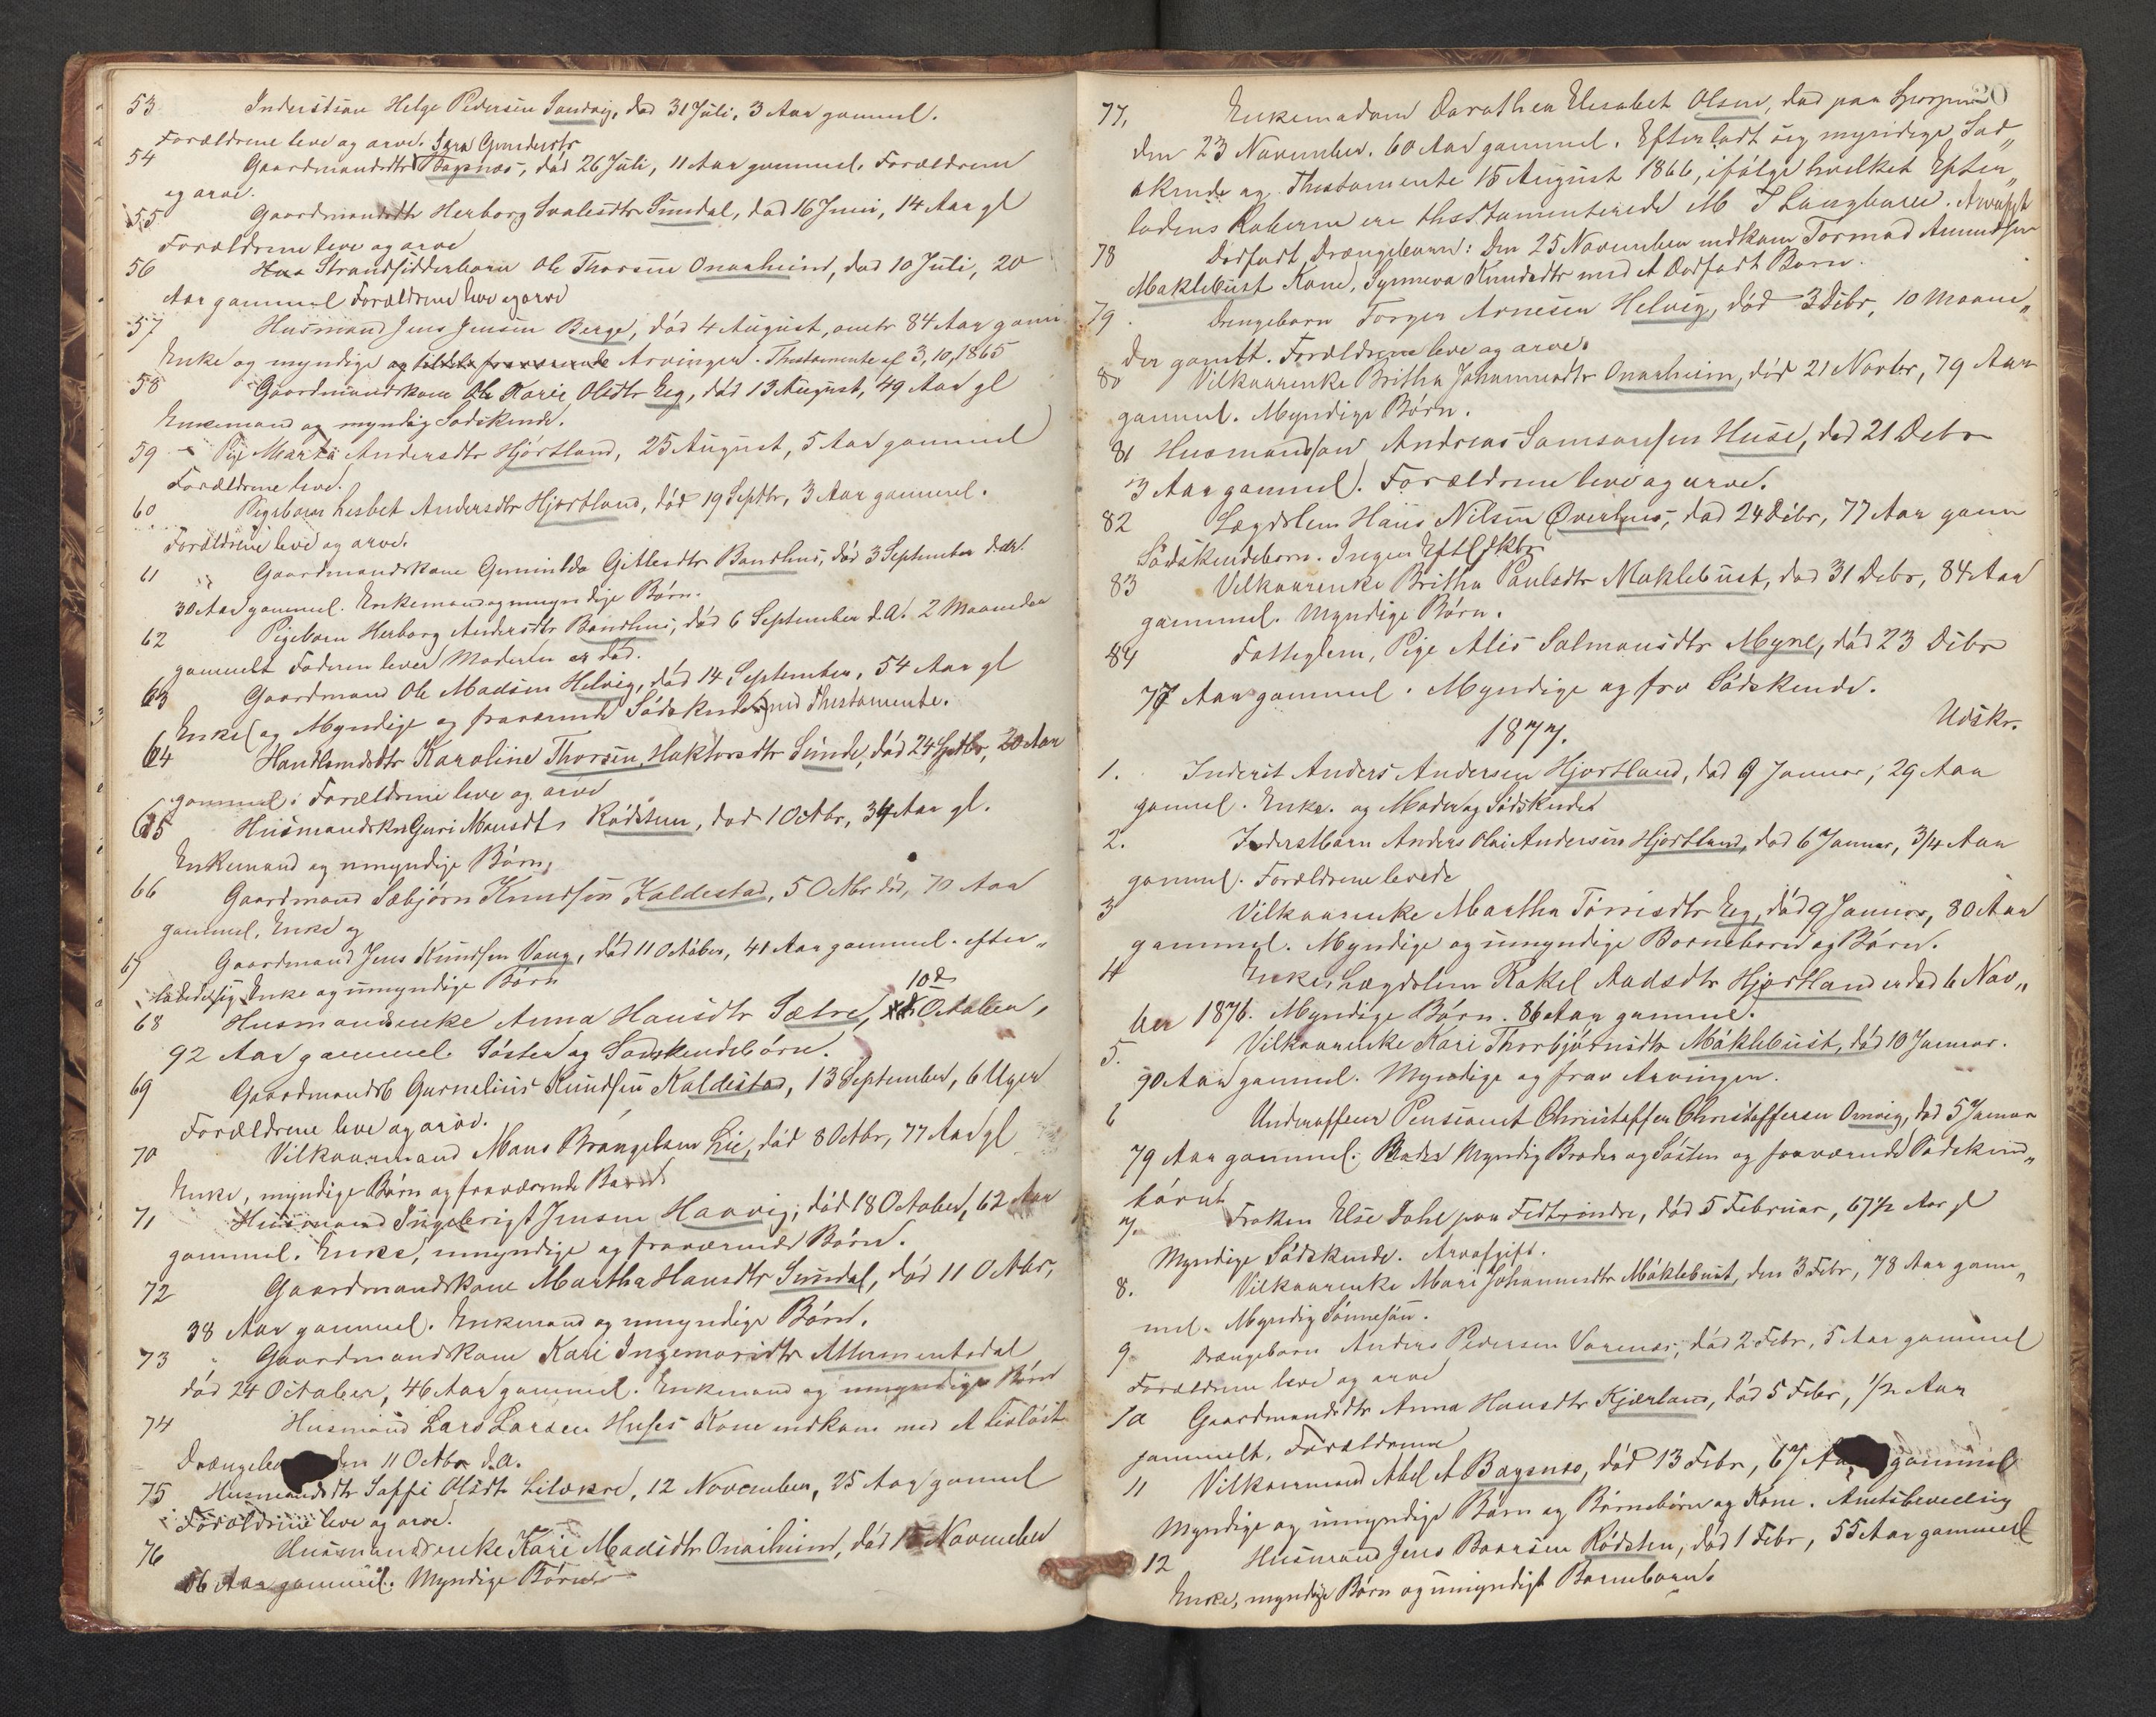 53 Inderstsøn Helge Pedersen Sandvig, død 31 Juli, 3 Aar gammel.
Forældrene leve og arve. Sara Gundersdtr
54 Gaardmandsdtr Bagsnæs, død 26 Juli, 11 Aar gammel. Forældrene
og arve.
55 Gaardmandsdtr Herborg Ivalisdtr Sundal, død 16 Juni, 14 Aar gl
Forældrene leve og arve
56 Hus Strandsidderbarn Ole Thorsen Onarheim, død 10 Juli, 20
Aar gammel Forældrene leve og arve
57 Husmand Jens Jensen Berge, død 4 August, omtr 84 Aar gam
Enke og myndige og tildels fraværende Arvinger. Thestamente af 3,10,1865
58 Gaardmandskone Ole Kari Olsdtr Eeg, død 13 August, 49 Aar gl
Enkemand og myndig Sødskende.
59 Pige Marta Andersdtr Hjortland, 25 August, 5 Aar gammel
Forældrene leve.
60 Pigebarn Lesbet Andersdtr Hjortland, død 19 Septbr, 3 Aar gammel.
Forældrene leve og arve.
61 Gaardmandskone Gunnilda Gitlesdtr Bondhus, død 3 September d.A.
30 Aar gammel. Enkemand og umyndige Børn.
62 Pigebarn Herborg Andersdtr Bondhus, død 6 September d.A. 2 Maaneder
gammelt Faderen lever Moderen er død.
63 Gaardmand Ole Madsen Helvig, død 14 September, 54 Aar gl
Enke (og Myndige og fraværende Sødskende) med Thestamente.
64 Handlsmdsdtr Karoline Thorsen Haktorsdtr Sunde, død 24 Septbr, 20 Aar
gammel. Forældrene leve og arve
65 Husmandskn Guri Monsdtr Rødsteen, død 1 Octbr, 34 Aar gl.
Enkemand og umyndige Børn,
66 Gaardmand Sæbjørn Knudsen Kaldestad, 5 Octbr død, 70 Aar
gammel, Enke og
67 Gaardmand Jens Knudsen Vaag, død 11 October, 41 Aar gammel. efter„
ladede sig Enke og umyndige Børn
10d
68 Husmandsenke Anna Hansdtr Sætre, October,
92 Aar gammel. Søster og Sødskendebørn.
69 Gaardmandsb Gurnelius Knudsen Kaldestad, 13 September, 6 Uger
Forældrene leve og arve.
70 Vilkaarmand Mons Brangelsen Lie, død 8 Octbr, 77 Aar gl
Enke, myndige Børn og fraværende Barn.
71 Husmand Ingebrigt Jensen Haavig, død 18 October, 62 Aar
gammel. Enke, umyndige og fraværende Børn.
72 Gaardmandskone Martha Hansdtr Sundal, død 11 Octbr,
38 Aar gammel. Enkemand og umyndige Børn.
73 Gaardmandskone Kari Ingemorsdtr
død 24 October, 46 Aar gammel. Enkemand og umyndige Børn
74 Husmand Lars Larsen Huses Kone nedkom med et livløst
Drængeba den 11 Octbr d.A.
75 Husmandsdtr Saffi Olsdtr Lilækre, 12 November, 25 Aar gammel
Forældrene leve og arve.
76 Husmandsenke Kari Madsdtr Onarheim, død November
Aar gammel. Myndige Børn
77, Enkemadam Dorothea Elisabet Olsen, død paa
den 23 November. 60 Aar gammel. Efterladt sig myndige Sød„
skende og Thestamente 15 August 1866, ifølge hvilket Efter„
ladens Roberne ere thestamenterede M J Langhare. Arvafgft
78 Dødfødt Drængebarn: Den 25 November nedkom Tormod Amundsen
Maklebust Kone, Synneva Knudsdtr med et Dødfødt Barn.
79 Drengebarn Torger Arnesen Helvig, død 3 Debr, 10 Maane„
der gamlt. Forældrene leve og arve.
80 Vilkaarenke Britha Johannesdtr Onarheim, død 21 Novbr, 79 Aar
gammel. Myndige Børn.
81 Husmandsøn Andreas Samsonsen Huse, død 21 Debr
3 Aar gammel. Forældrene leve og arve.
82 Lægdslem Hans Nilsen Øverhus, død 24 Debr, 77 Aar gamm
Sødskendeborn. Ingen
83 Vilkaarenke Britha Paulsdtr Maklebust, død 31 Debr, 84 Aar
gammel. Myndige Børn.
84 Fattiglem, Pige Alis Salmonsdtr Myne, død 23 Debr
77 Aar gammel. Myndige og frav Sødskende.
1877. Udskr.
1. Inderst Anders Andersen Hjortland, død 9 Januar, 29 Aar
gammel. Enke. og Moder og Sødskende
2. Inderstbarn Anders Olai Andersen Hjortland, død 6 Januar, 3/4 Aar
gammel. Forældrene levede
3 Vilkaarenke Martha Tørrisdtr Eeg, død 9 Januar, 80 Aar
gammel. Myndige og umyndige Borneborn og Børn.
4 Enke, Lægdslem Rakel Aadsdtr Hjortland er død 6 Nov„
ber 1876. Myndige Børn. 86 Aar gammel.
5. Vilkaarenke Kari Thorbjørnsdtr Møklebust, død 10 Januar.
90 Aar gammel. Myndige og frav Arvinger.
6 Underofficer Pensionist Christoffer Christoffersen Omvig, død 5 Januar
79 Aar gammel. Myndig Broder og Søster og fraværende Sødskend„
børn
7. Frøken Else Dahl paa Fedtrindre, død 5 Februar, 67 1/2 Aar gl
Myndige Sødskende. Arvafgift.
8. Vilkaarenke Mari Johannesdtr Møklebust, den 3 Febr, 78 Aar gam„
mel. Myndig Sønnesøn.
9 Drængebarn Anders Pedersen Varenæs, død 2 Febr, 5 Aar gammel
Forældrene leve og arve
10 Gaardmandsdtr Anna Hansdtr Kjærland, død 5 Febr, 1/2 Aar
gammelt. Forældrene
11 Vilkaarmand Abel A Bagsnæs, død 13 Febr, 67 A gammel
Myndige og umyndige Børn og Børnebørn og Kone. Amtsbevilling
12 Husmand Jens Baarsen Rødsten, død 1 Febr, 55 Aar gammel
Enke, myndige Børn og umyndigt Barnebarn.